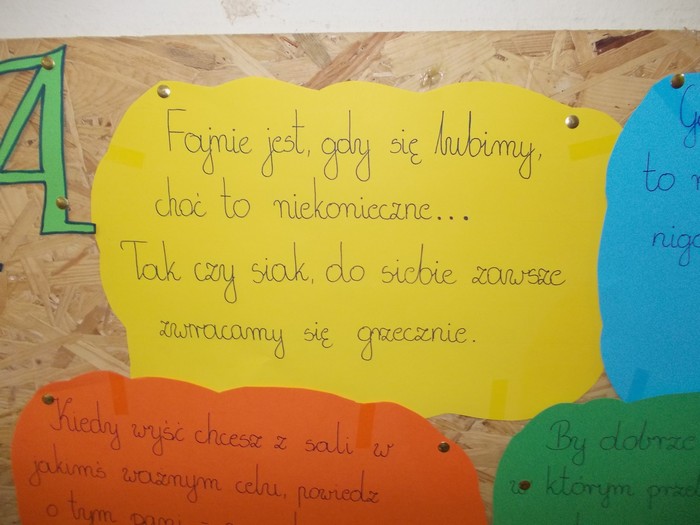 A
Fajnie jest, gdy się lubimy,
choć to niekonieczne...
Tak czy siak, do siebie zawsze
zwracamy się grzecznie.
to
Kiedy wyść chcesz z sali w
jakimś ważnym celu, powiedz
o tym pani
By dobrze
w którym